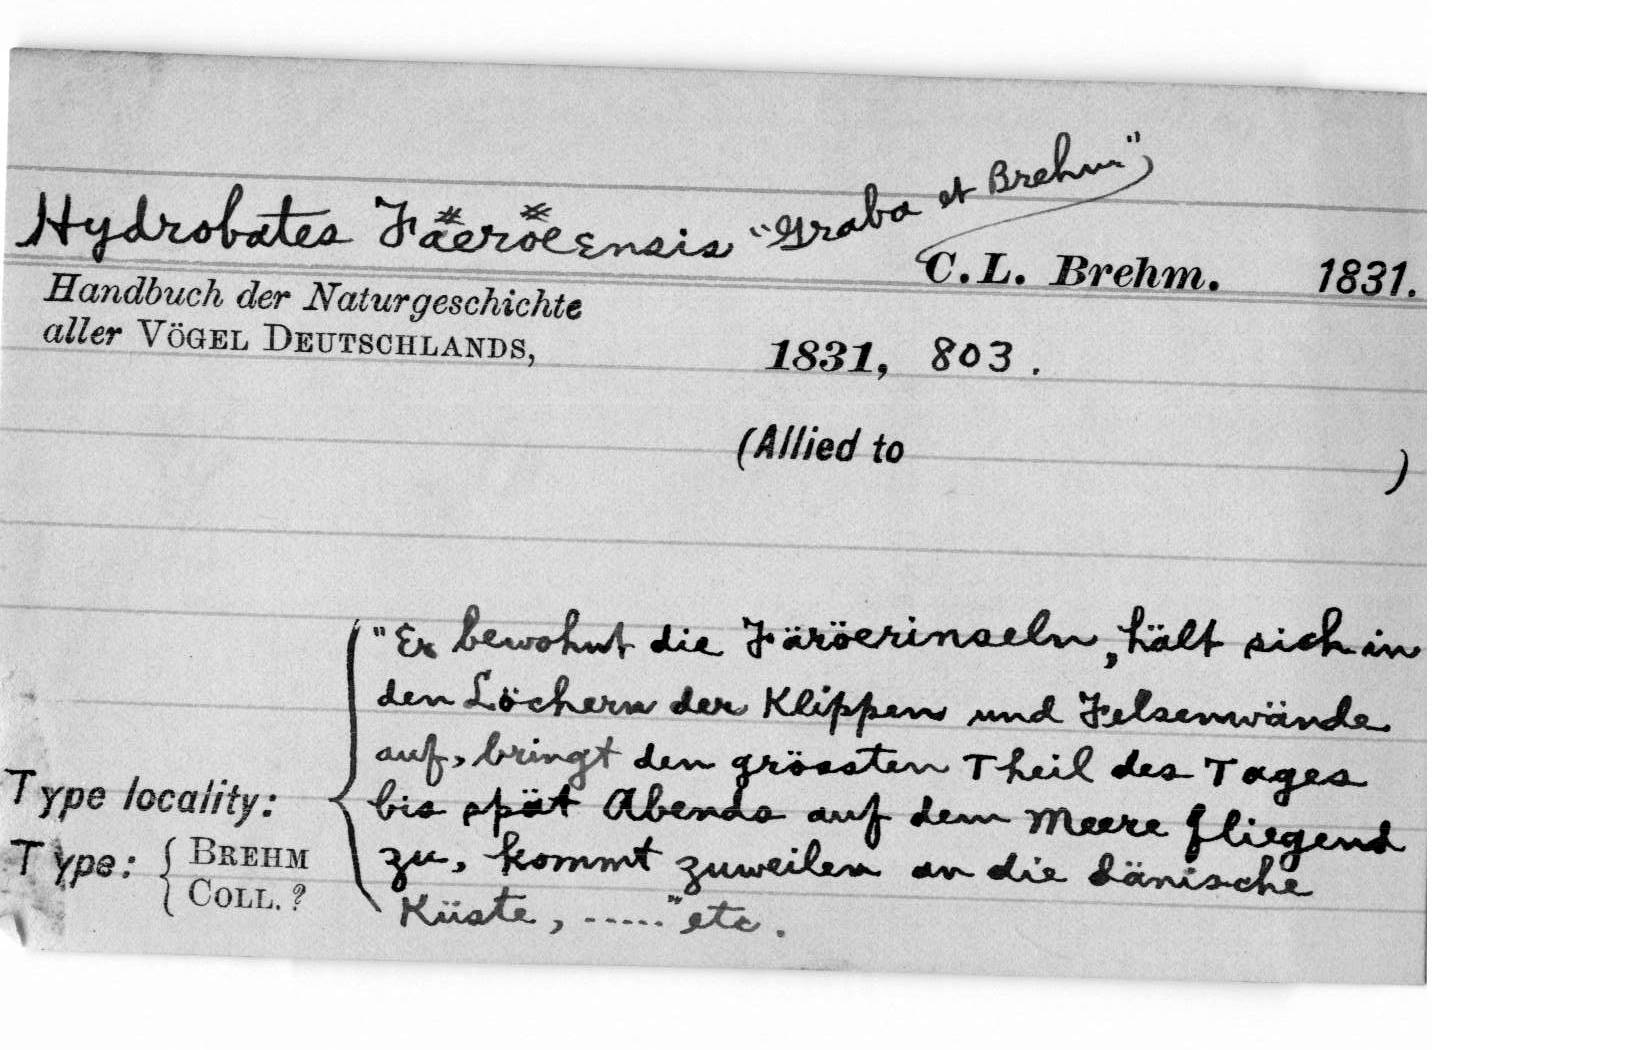 Hydrobates Färöensis "Graba et Brehm"
C. L. Brehm. 1831.
Handbuch der Naturgeschichte
aller VÖGEL DEUTSCHLANDS, 1831, 803.
(Allied to )
"Er bewohnt die Färöerinseln, hält sich in
den Löchern der Klippen und Felsenwände
auf, bringt den grössten Theil des Tages
Type locality: bis spät Abends auf dem Meere fliegend
Type: { BREHM COLL. ? zu, kommt zuweilen an die dänische
Küste, ....." etc.